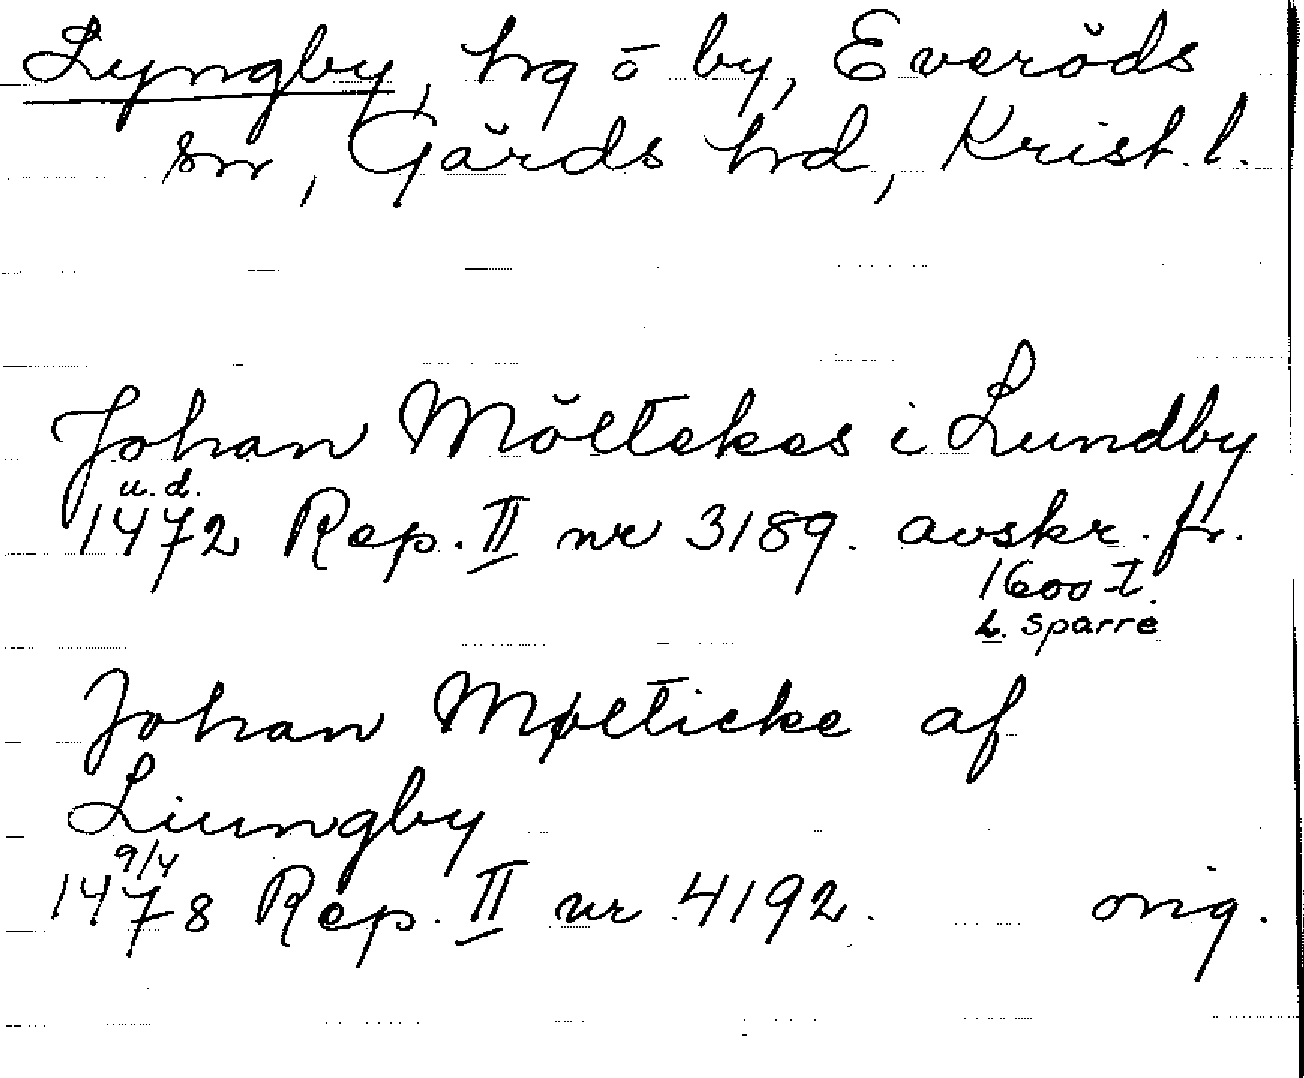 Lyngby, hg o by, Everöds
sn, Gärds hrd, Krist. l.
Johan Möltekes i Lundby
u. d.
1472 Rep. II nr 3189. avskr. fr.
1600-t.
L. Sparre
Johan Mølticke af
Liungby
9/4
1478 Rep. II nr 4192. orig.